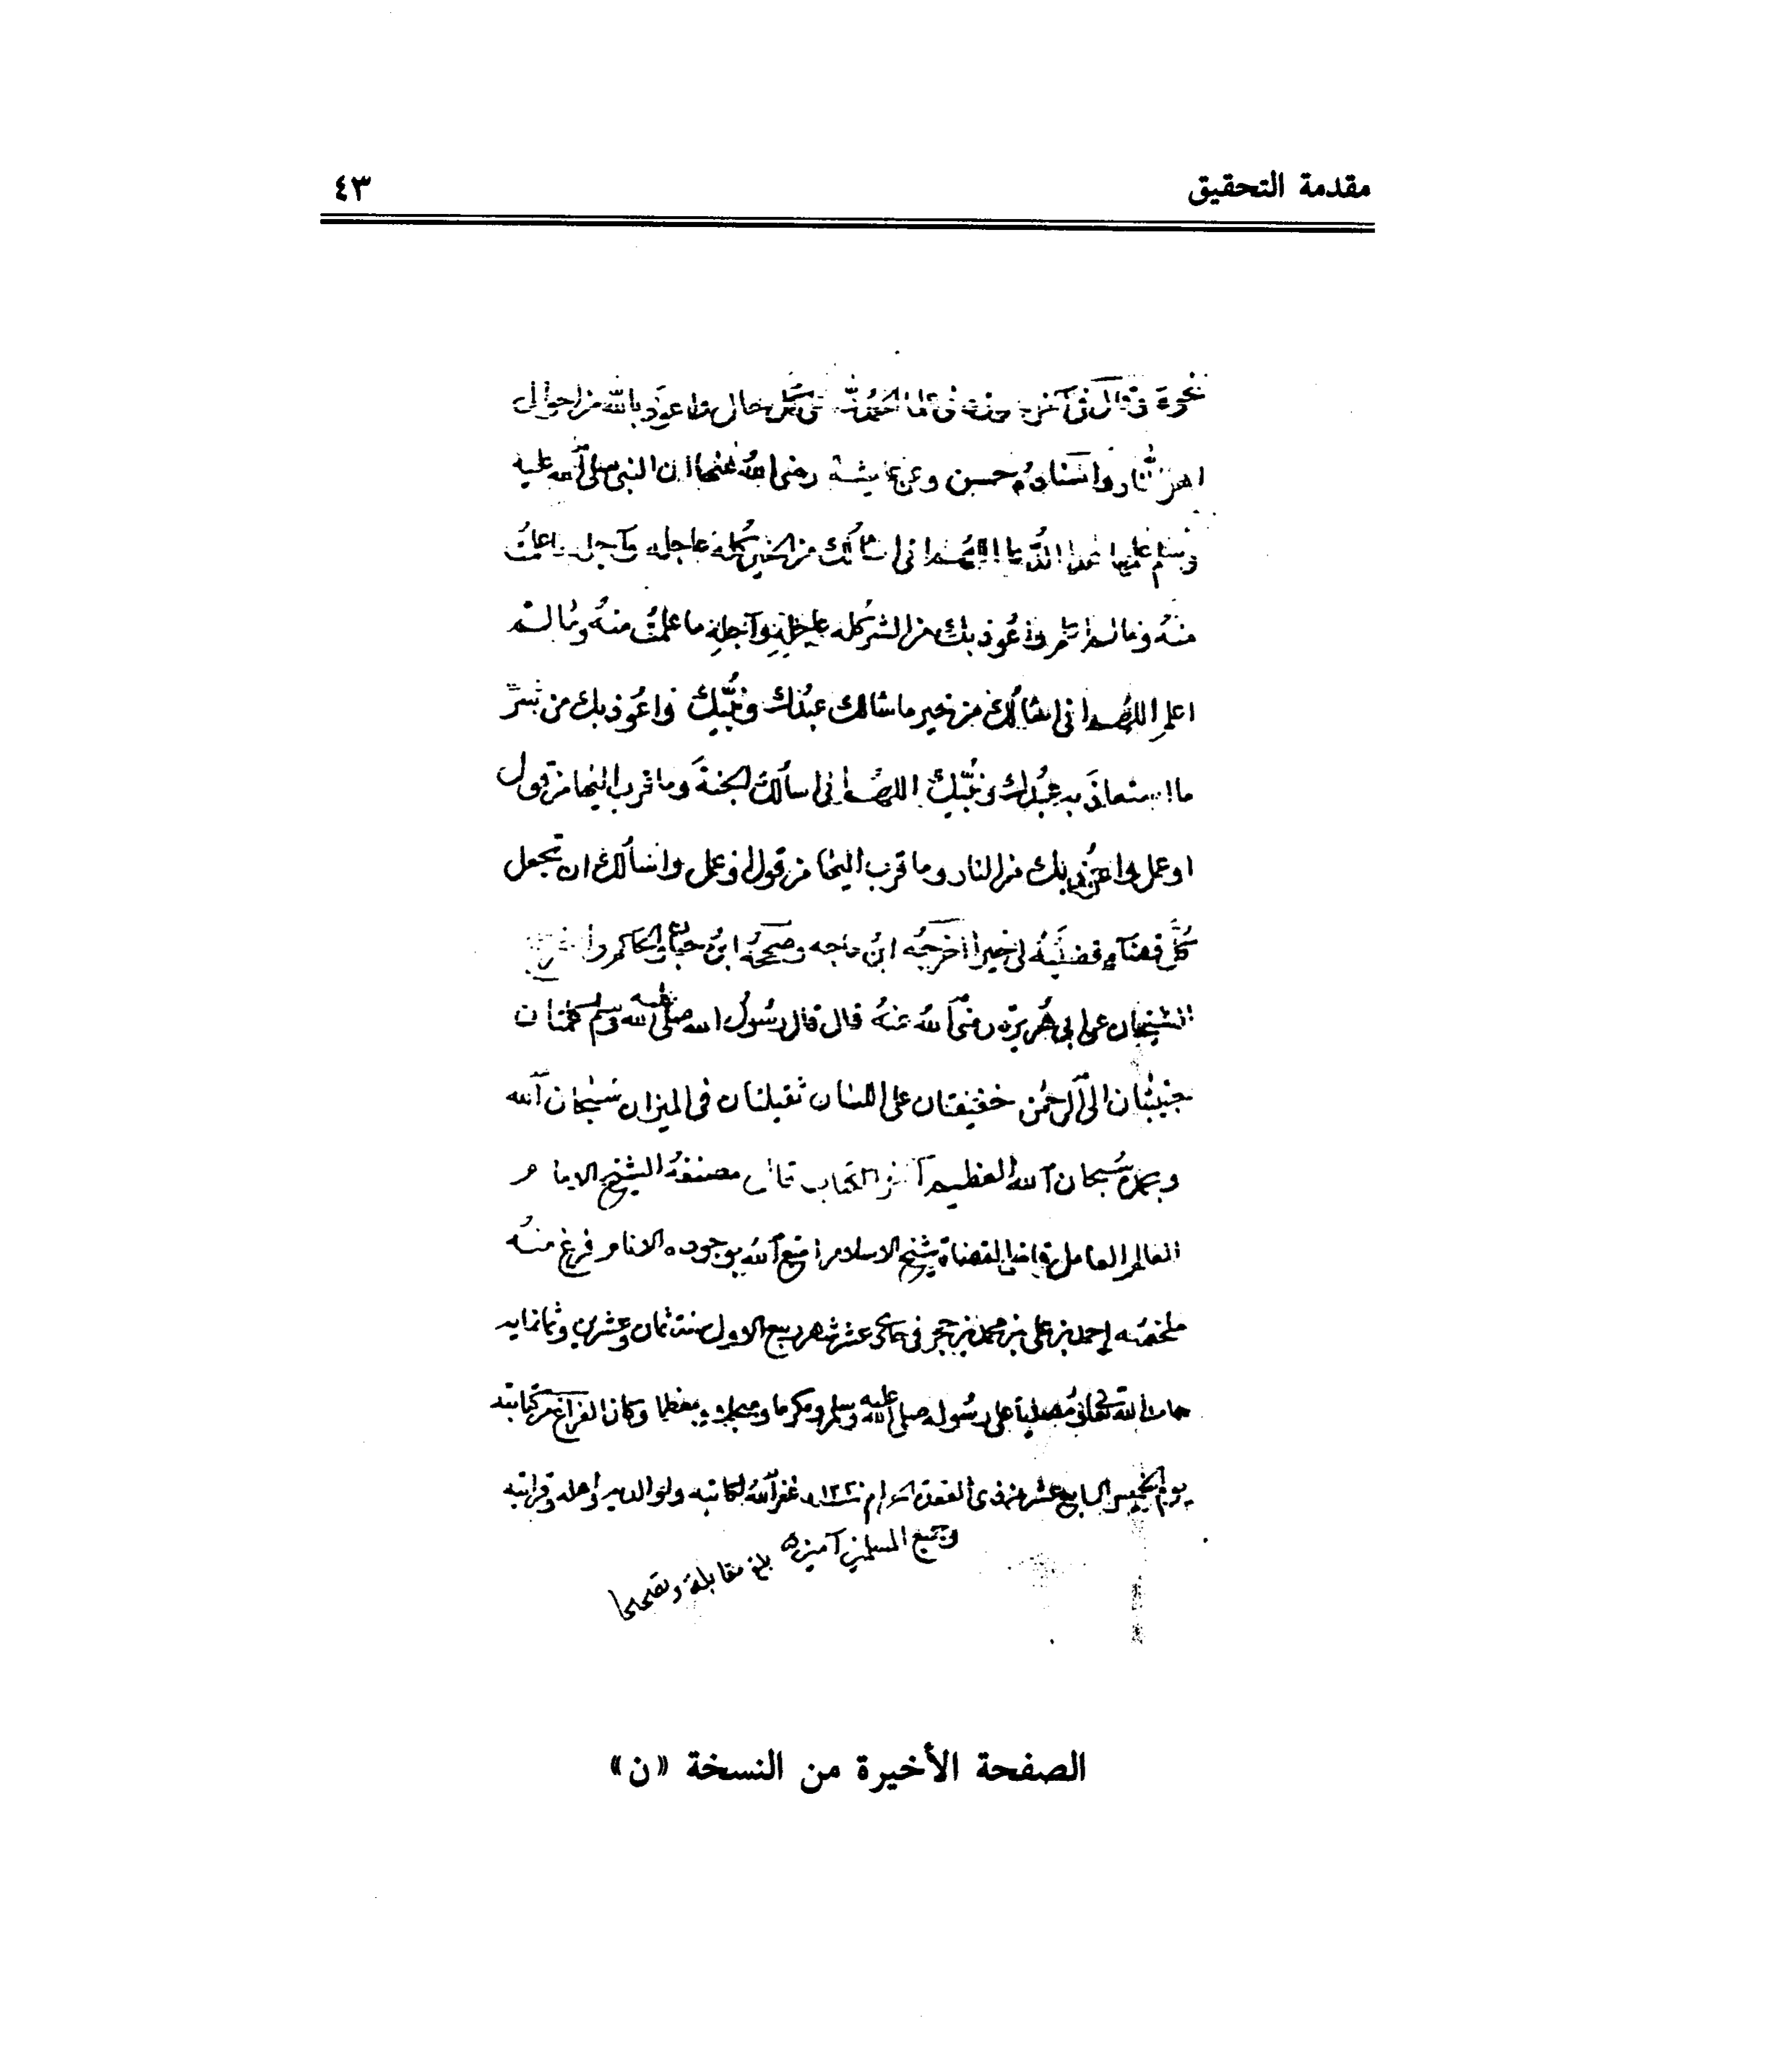 مقدمة التحقيق
٤٣
نحوه وقال في آخره وزدنى علما الحمد لله على كل حال واعوذ بالله من احوال
اهل النار واسناده حسن وعن عايشة رضى الله عنها ان النبي صلى الله عليه
وسلم علمها هذا الدعا اللهم انى اسألك من الخير كله عاجله وآجله ما علمت
منه وما لم اعلم واعوذ بك من الشر كله عاجله وآجله ما علمت منه وما لم
اعلم اللهم انى اسألك من خير ما سالك عبدك ونبيك واعوذ بك من شر
ما استعاذ به عبدك ونبيك اللهم انى اسألك الجنة وما قرب اليها من قول
او عمل واعوذ بك من النار وما قرب اليها من قول او عمل واسألك ان تجعل
كل قضاء قضيته لى خيرا اخرجه ابن ماجه وصححه ابن حبان والحاكم واخرج
الشيخان عن ابي هريرة رضى الله عنه قال قال رسول الله صلى الله عليه وسلم كلمتان
حبيبتان الى الرحمن خفيفتان على اللسان ثقيلتان في الميزان سبحان الله
وبحمده سبحان الله العظيم آخر الكتاب قال مصنفه الشيخ الامام
العالم العامل قاضى القضاة شيخ الاسلام امتع الله بوجوده الانام فرغ منه
ملخصه احمد بن على بن محمد بن حجر في حادى عشر شهر ربيع الاول سنة ثمان وعشرين وثمانمايه
حامدا لله تعالى ومصليا على رسوله صلى الله عليه وسلم ومكرما ومبجلا ومعظما وكان الفراغ من كتابته
يوم الخميس السابع عشر من ذى القعدة الحرام غفر الله لكاتبه ولوالديه واهله وقرابته
وجميع المسلمين آمين
بلغ مقابلة وتصحيحا
الصفحة الأخيرة من النسخة «ن»